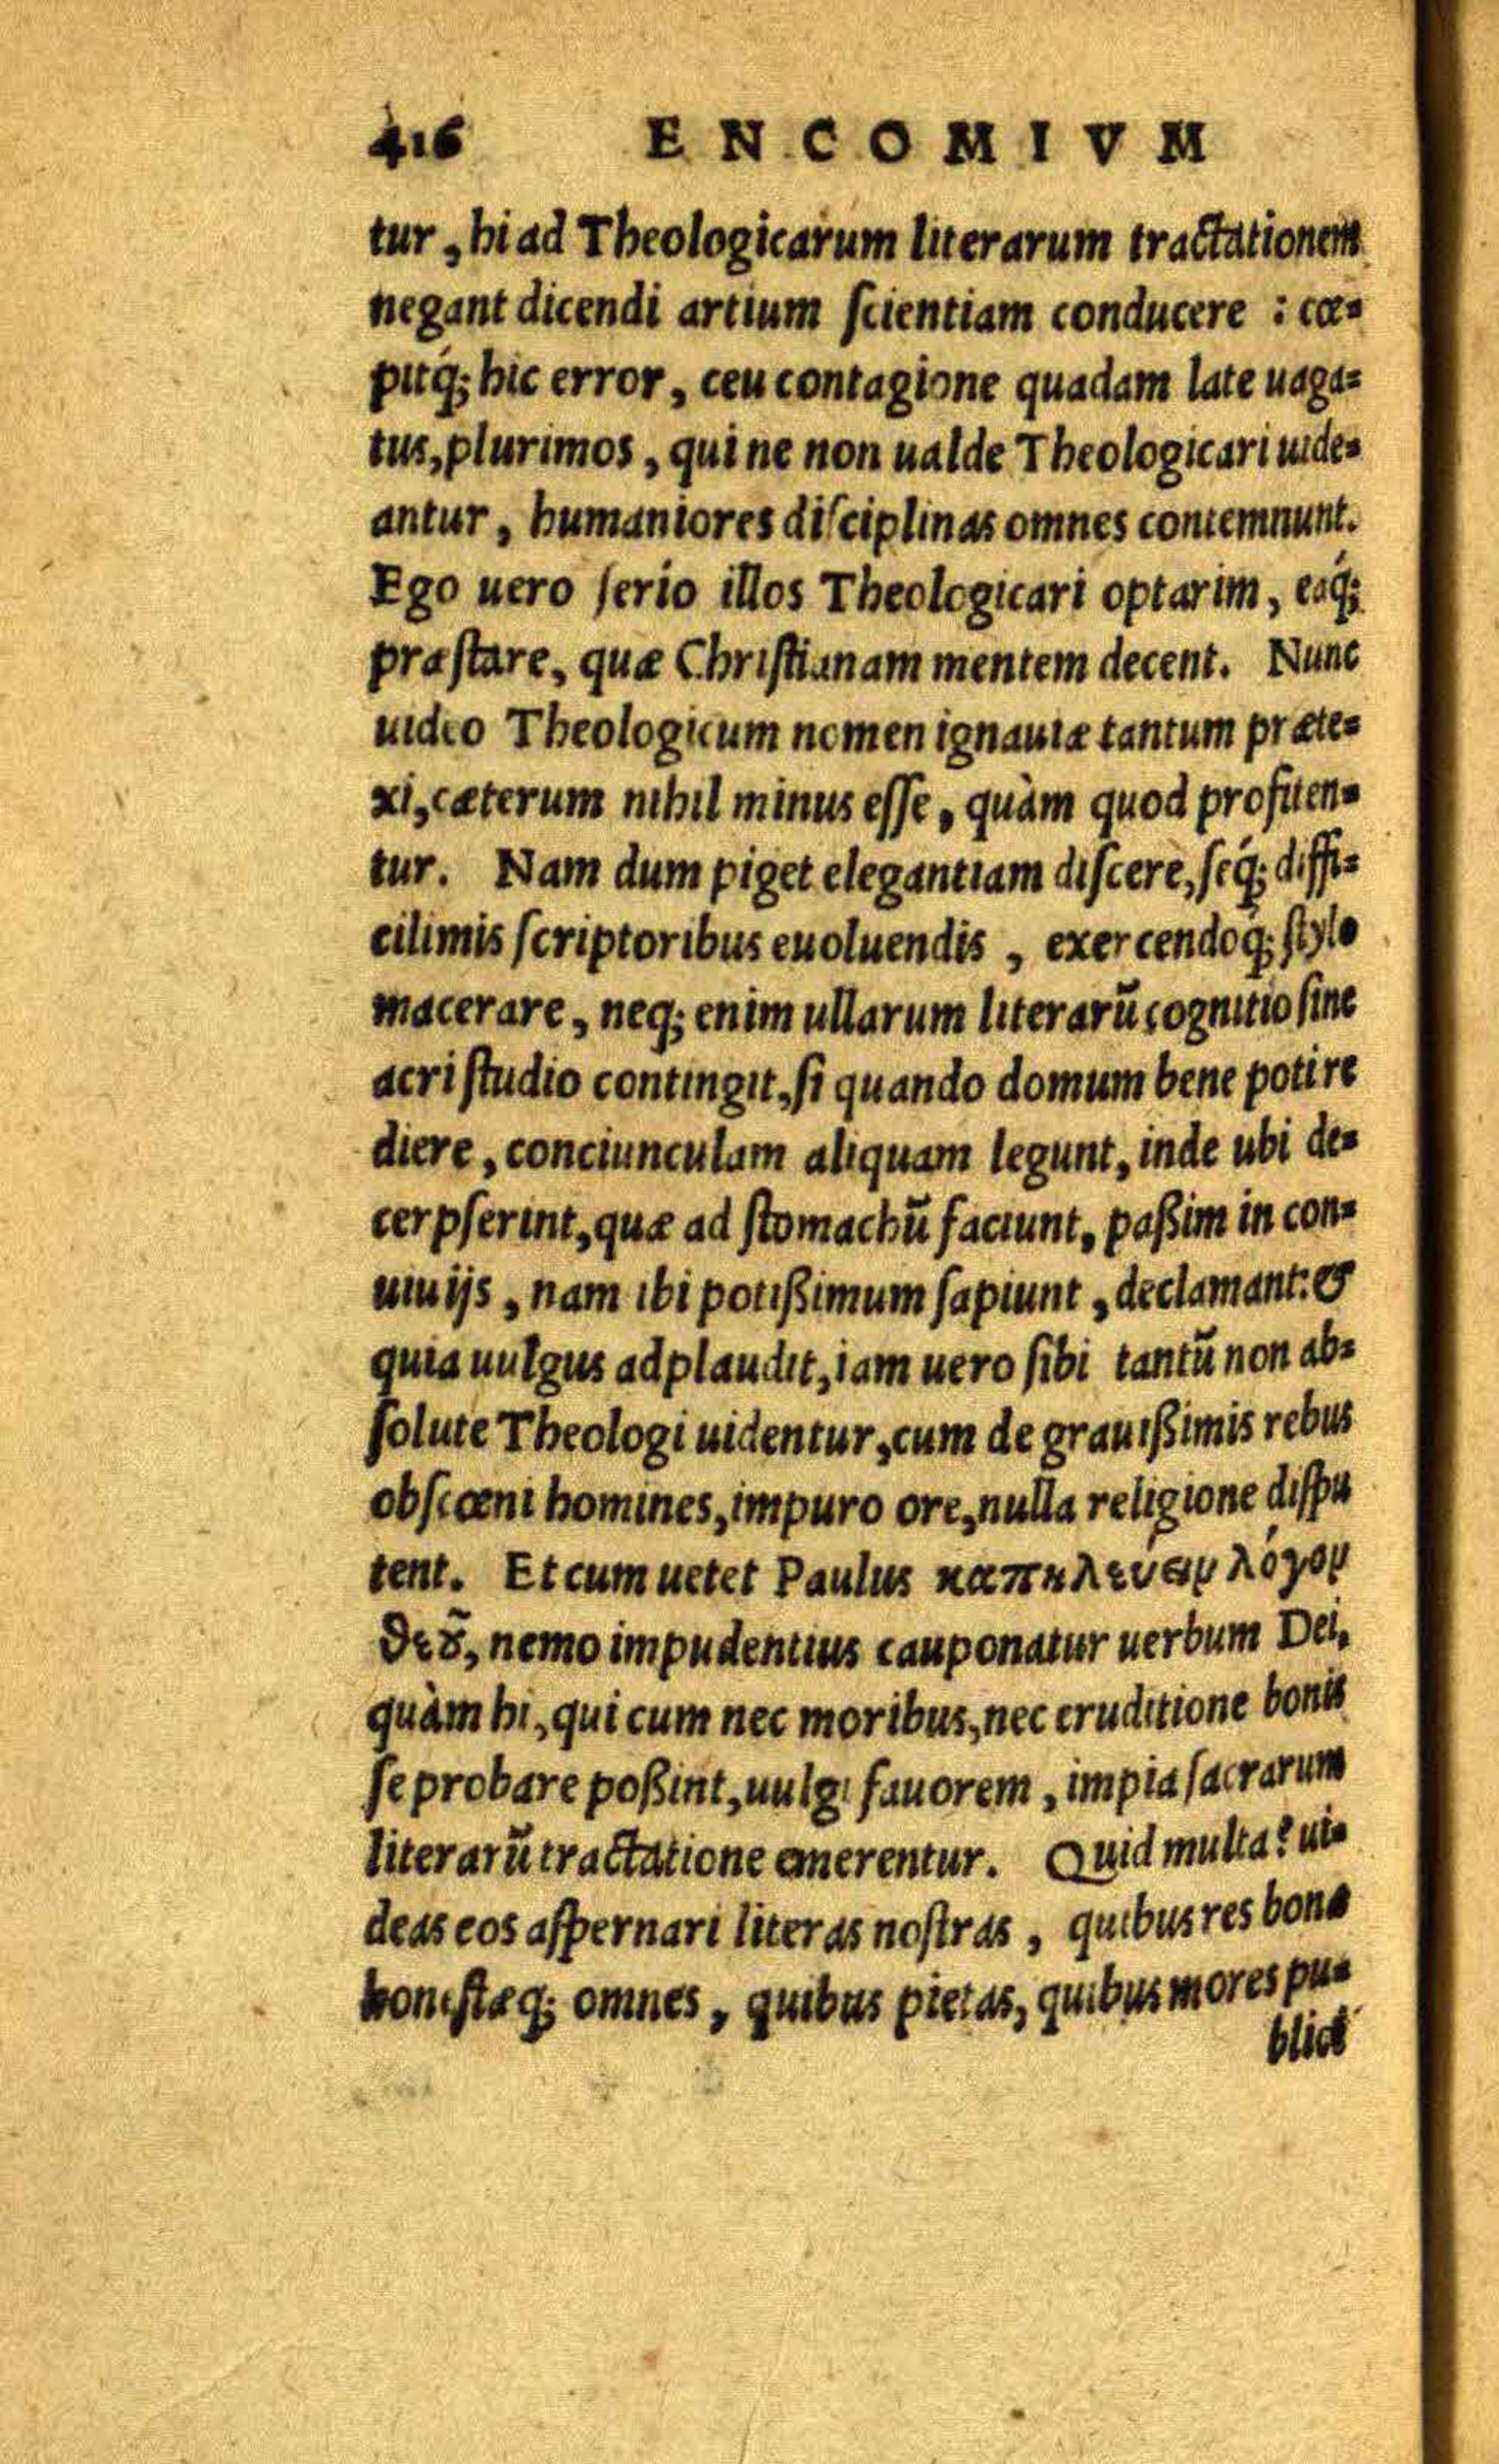 416 ENCOMIVM
tur, hi ad Theologicarum literarum tractationem
negant dicendi artium ſcientiam conducere : cœ-
pitq́; hic error, ceu contagione quadam late uaga-
tus, plurimos, qui ne non ualde Theologicari uide-
antur, humaniores diſciplinas omnes contemnunt.
Ego uero ſerio illos Theologicari optarim, eaq́;
præſtare, quæ Chriſtianam mentem decent. Nunc
uideo Theologicum nomen ignauiæ tantum præte-
xi, cæterum nihil minus eſſe, quàm quod profiten-
tur. Nam dum piget elegantiam diſcere, ſeq́; diffi-
cilimis ſcriptoribus euoluendis, exercendoq́; ſtylo
macerare, neq; enim ullarum literarũ cognitio ſine
acri ſtudio contingit, ſi quando domum bene poti re
diere, conciunculam aliquam legunt, inde ubi de-
cerpſerint, quæ ad ſtomachũ faciunt, paßim in con-
uiuijs, nam ibi potißimum ſapiunt, declamant: &
quia uulgus adplaudit, iam uero ſibi tantũ non ab-
ſolute Theologi uidentur, cum de grauißimis rebus
obſcœni homines, impuro ore, nulla religione diſpu
tent. Et cum uetet Paulus καπηλεύειν λόγον
θεȣ͂, nemo impudentius cauponatur uerbum Dei,
quàm hi, qui cum nec moribus, nec eruditione bonis
ſe probare poßint, uulgi fauorem, impia ſacrarum
literarũ tractatione emerentur. Quid multa? ui-
deas eos aſpernari literas noſtras, quibus res bonæ
honeſtæq́; omnes, quibus pietas, quibus mores pu-
blici